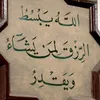 الله يبسط
الرزق لمن يشاء
ويقدر